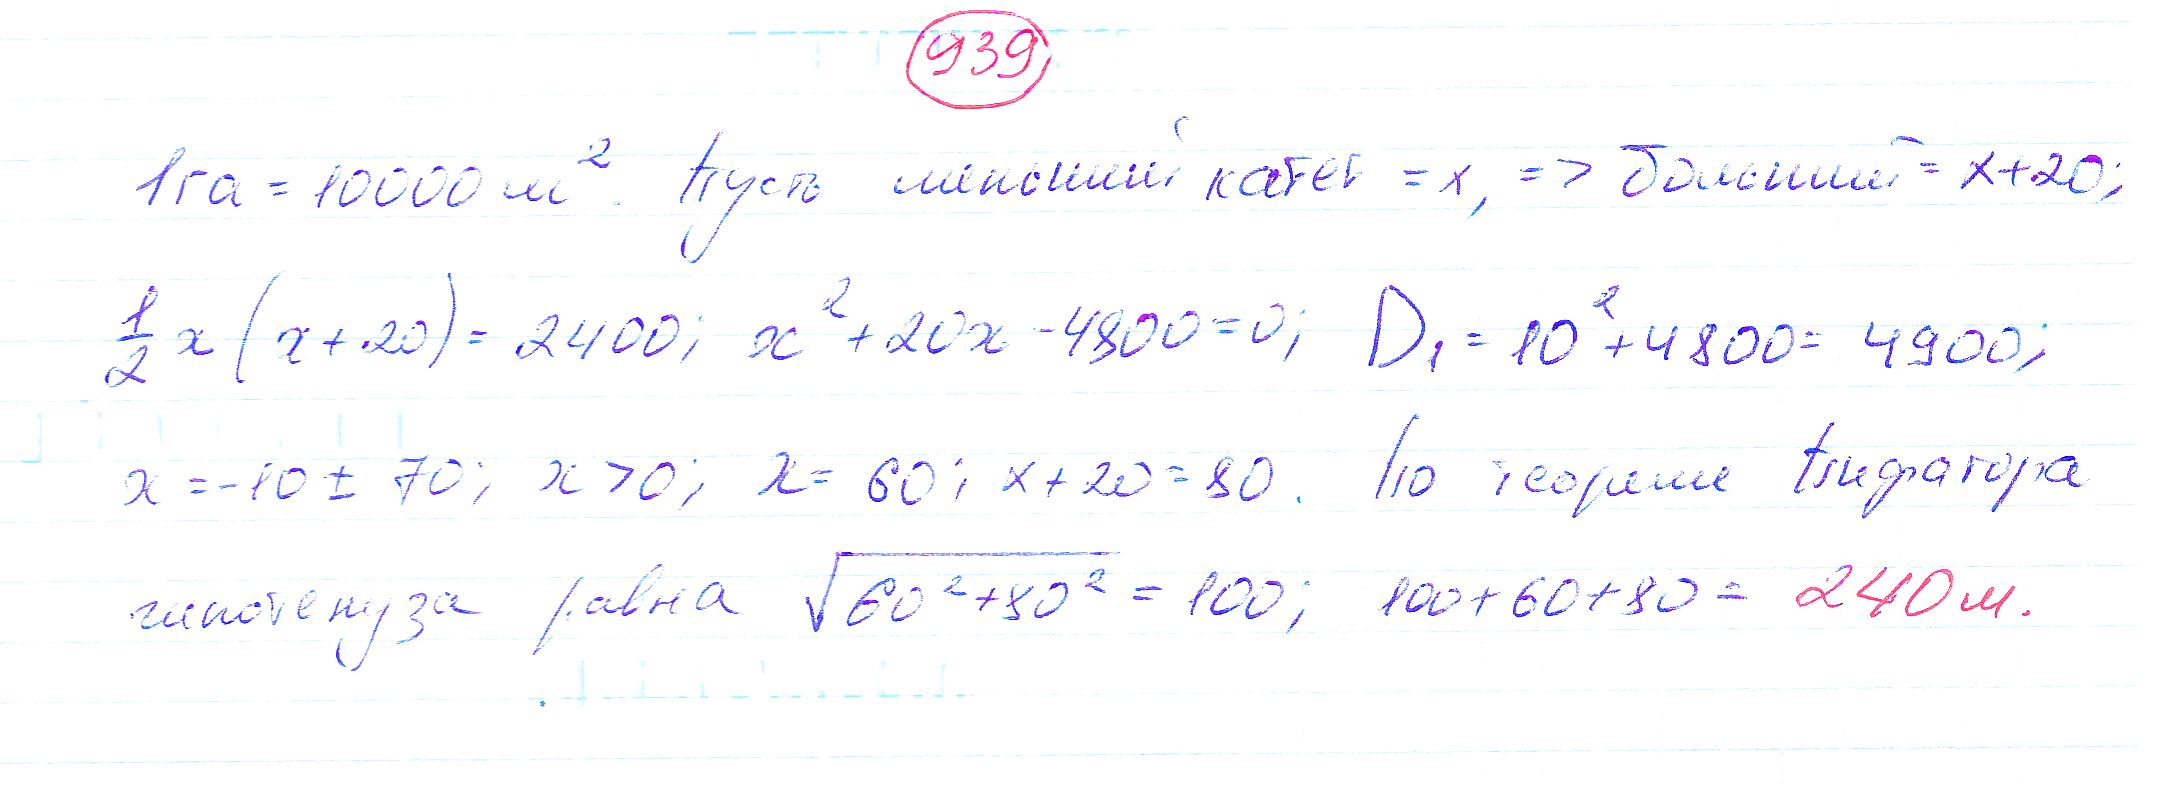 939
1га = 10000 м². Пусть меньший катет = x, => больший = x+20;
½x(x+20) = 2400; x²+20x-4800=0; D₁=10²+4800=4900;
x=-10±70; x>0; x=60; x+20=80. По теореме Пифагора
гипотенуза равна √60²+80² = 100; 100+60+80= 240м.